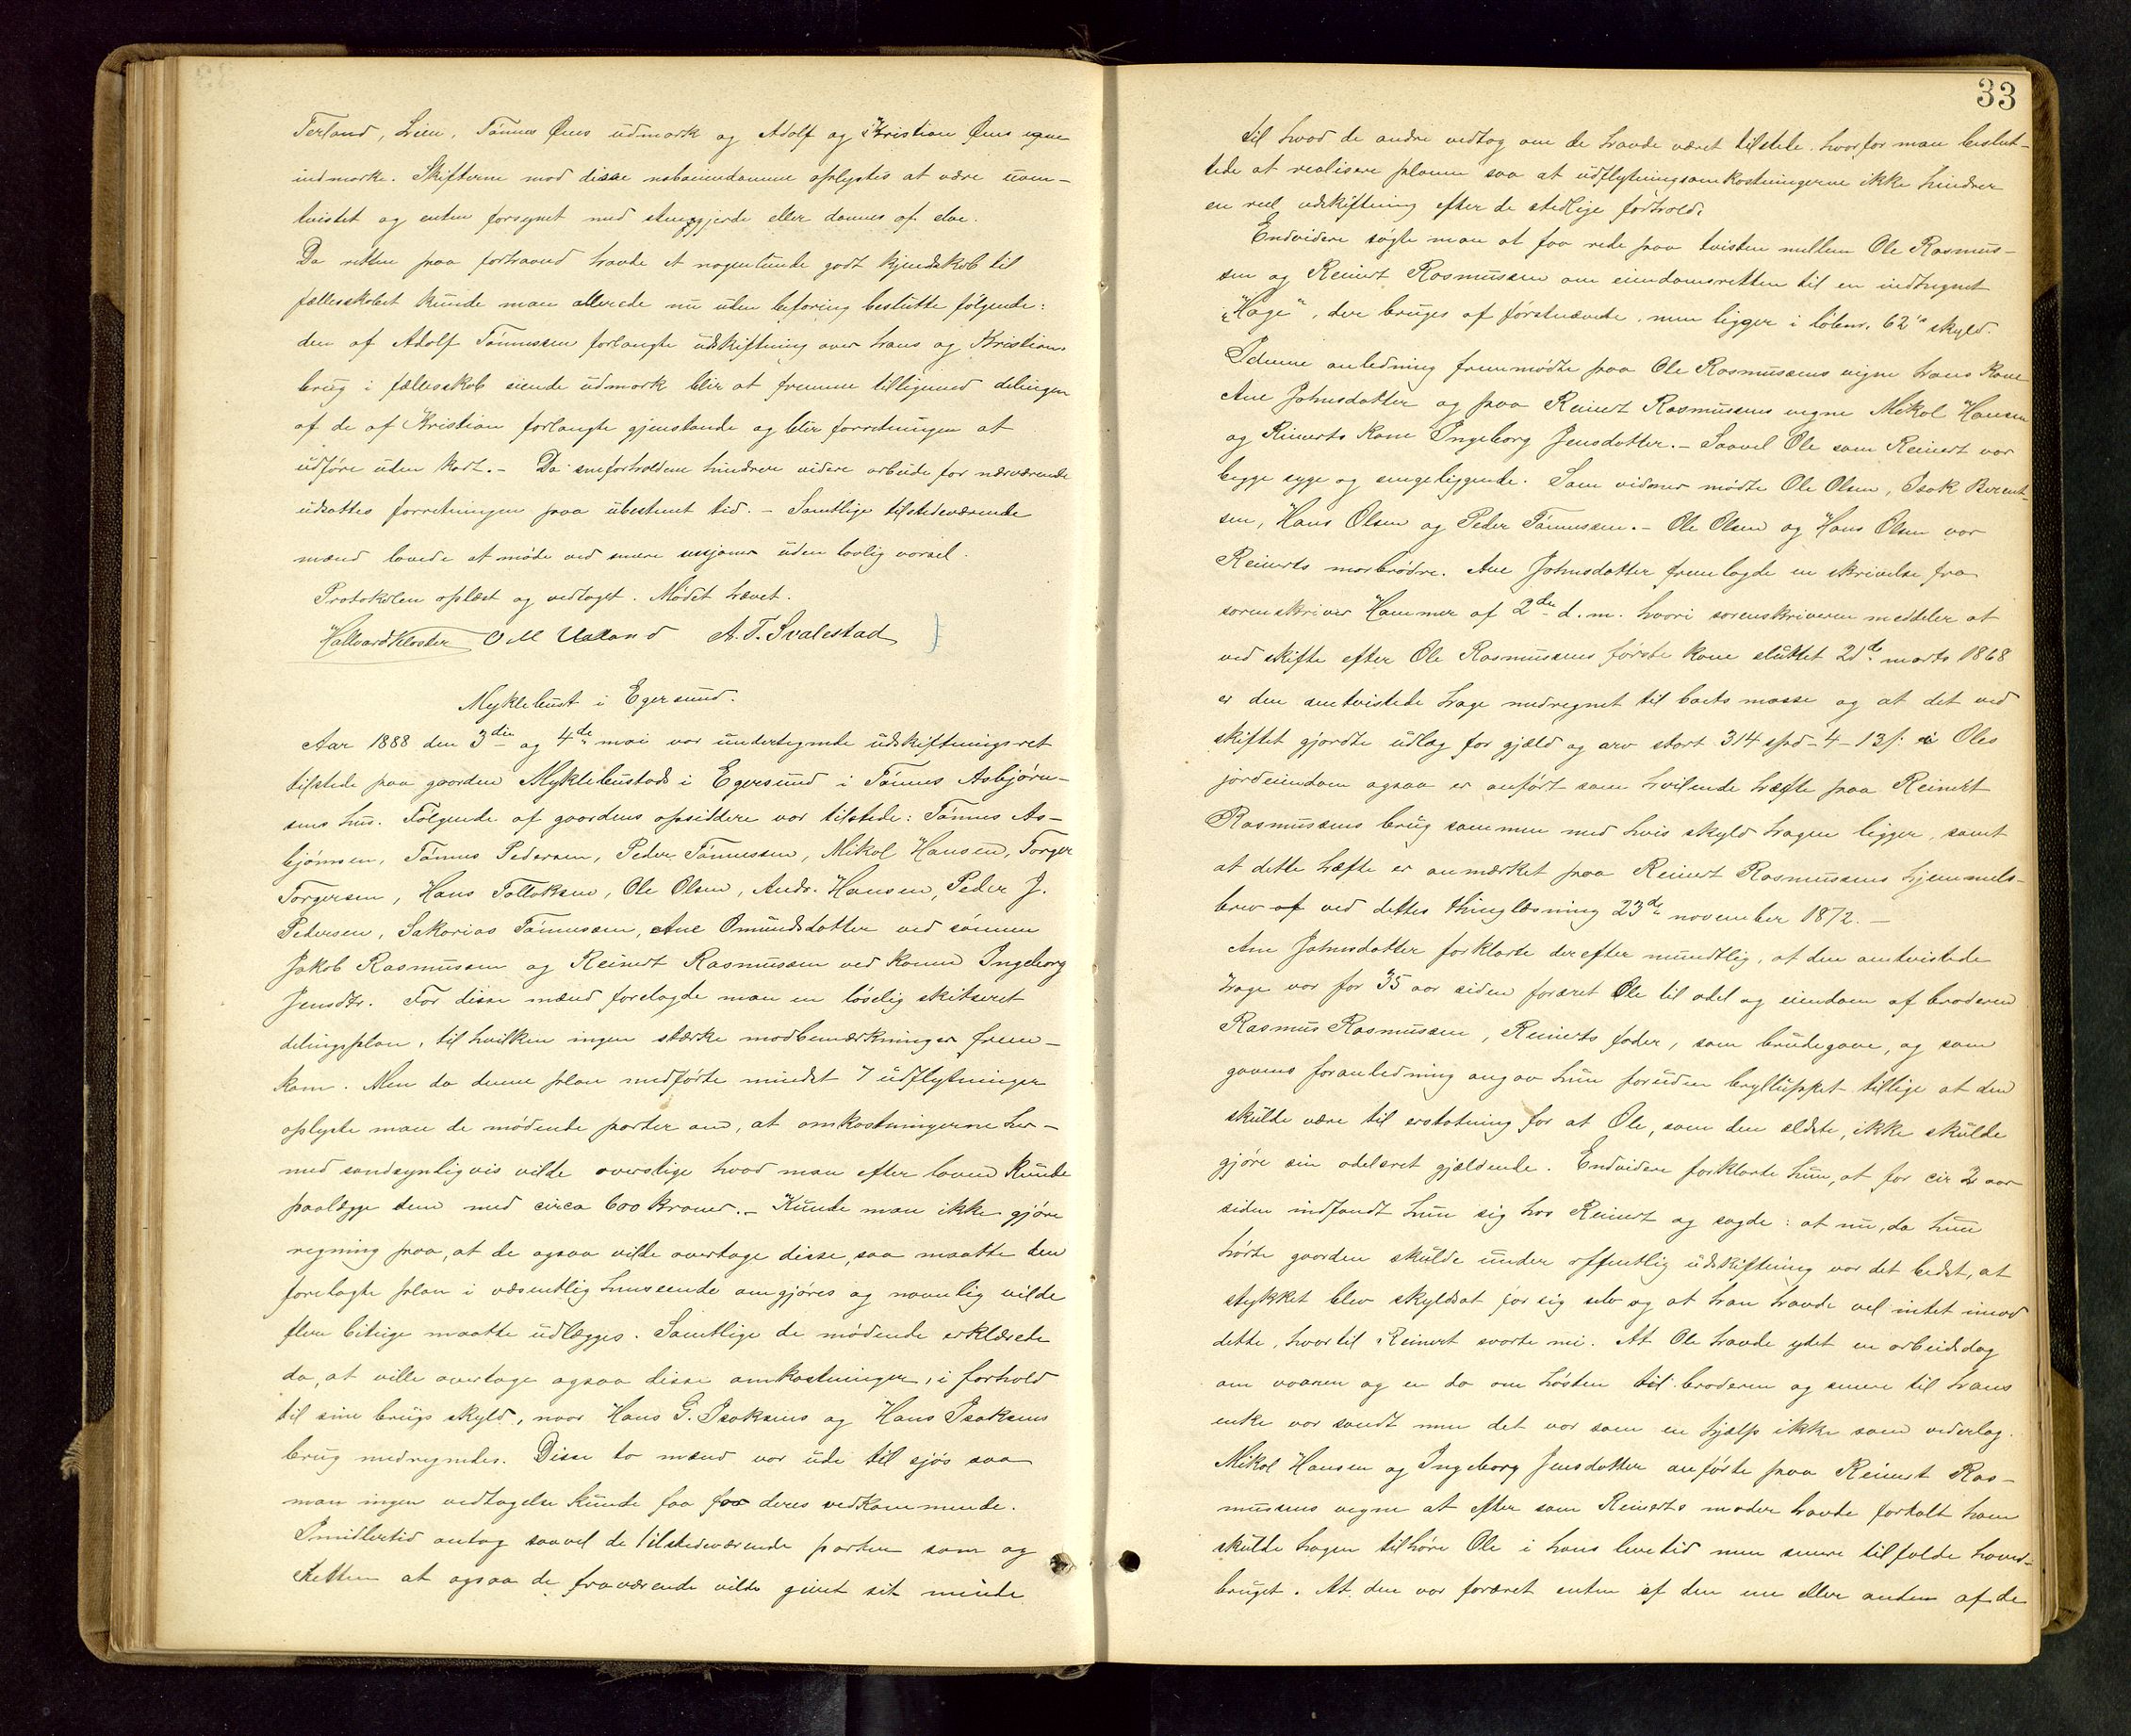 Terland, Lien, Tønnes Øens udmark og Adolf og Kristian Øens egne
indmarke. Skifterne mod disse naboeiendomme oplystes at være uom-
tvistet og enten forsynet med stengjerde eller dannes af elve.
Da retten paa forhaand havde et nogenlunde godt kjendskab til
fællesskabet kunde man allerede nu uden befaring beslutte følgende:
den af Adolf Tønnessen forlangte udskiftning over hans og Kristians
brug i fællesskab eiende udmark blir at fremme tilligemed delingen
af de af Kristian forlangte gjenstande og blir forretningen at
udføre uden kart. - Da sneforholdene hindrer videre arbeide for nærværende
udsattes forretningen paa ubestemt tid. - Samtlige tilstedeværende
mænd lovede at møde ved senere sesjoner uden lovlig varsel.
Protokolen oplæst og vedtaget. Mødet hævet.
Hallvard Kloster O M Ueland A. T. Svalestad
Myklebust i Egersund.
Aar 1888 den 3die og 4de mai var undertegnede udskiftningsret
tilstede paa gaarden Myklebustad i Egersund i Tønnes Asbjørn-
sens hus. Følgende af gaardens opsiddere var tilstede: Tønnes As-
bjørnsen, Tønnes Pedersen, Peder Tønnessen, Mikal Hansen, Torger
Torgersen, Hans Tollaksen, Ole Olsen, Andr. Hansen, Peder J.
Pedersen, Sakarias Tønnessen, Ane Omundsdatter ved sønnen
Jakob Rasmussen og Reinert Rasmussen ved konen Ingeborg
Jensdtr. For disse mænd forelagde man en løselig skitseret
delingsplan, til hvilken ingen stærke modbemærkninger frem-
kom. Men da denne plan medførte mindst 7 udflytninger
oplyste man de mødende parter om, at omkostningerne her-
med sandsynligvis vilde overstige hvad man efter loven kunde
paalægge dem med circa 600 kroner. - Kunde man ikke gjøre
regning paa, at de ogsaa vilde overtage disse, saa maatte den
forelagte plan i væsentlig henseende omgjøres og navnlig vilde
flere biteige maatte udlægges. Samtlige de mødende erklærede
da, at ville overtage ogsaa disse omkostninger, i forhold
til sine brugs skyld, naar Hans G. Isaksens og Hans Isaksens
brug medregnedes. Disse to mænd var ude til sjøs saa
man ingen vedtagelse kunde faa for deres vedkommende.
Imidlertid antog saavel de tilstedeværende parter som og
Retten at ogsaa de fraværende vilde givet sit minde
33
til hvad de andre vedtog om de havde været tilstede, hvorfor man beslut-
tede at realisere planen saa at udflytningsomkostningerne ikke hindrer
en reel udskiftning efter de stedlige forhold.
Endvidere søgte man at faa rede paa tvisten mellem Ole Rasmus-
sen og Reinert Rasmussen om eiendomsretten til en indhegnet
"Hage", der bruges af førstnævnte, men ligger i løbenr. 62 a skyld.
I denne anledning fremmødte paa Ole Rasmussens vegne hans kone
Ane Johnsdatter og paa Reinert Rasmussens vegne Mikal Hansen
og Reinerts kone Ingeborg Jensdatter. - Saavel Ole som Reinert var
begge syge og sengeliggende. Som vidner mødte Ole Olsen, Isak Berent-
sen, Hans Olsen og Peder Tønnessen. - Ole Olsen og Hans Olsen var
Reinerts morbrødre. Ane Johnsdatter fremlagde en skrivelse fra
sorenskriver Hammer af 2den d. m. hvori sorenskriveren meddeler at
ved skifte efter Ole Rasmussens første kone sluttet 21de marts 1868
er den omtvistede hage medregnet til boets masse og at det ved
skiftet gjordte udlæg for gjæld og arv stort 314 spd - 4 - 13 s. i Oles
jordeiendom ogsaa er anført som hvilende hæfte paa Reinert
Rasmussens brug sammen med hvis skyld hagen ligger, samt
at dette hæfte er anmærket paa Reinert Rasmussens hjemmels-
brev af ved dettes thinglæsning 23de november 1872. -
Ane Johnsdatter forklarte derefter mundtlig, at den omtvistede
hage var for 35 aar siden foræret Ole til odel og eiendom af broderen
Rasmus Rasmussen, Reinerts fader, som brudegave, og som
gavens foranledning angav hun foruden bryllupet tillige at den
skulde være til erstatning for at Ole, som den ældste, ikke skulde
gjøre sin odelsret gjældende. Endvidere forklarte hun, at for cir 2 aar
siden indfandt hun sig hos Reinert og sagde: at nu, da hun
hørte gaarden skulde under offentlig udskiftning var det bedst, at
stykket blev skyldsat for sig selv og at han havde vel intet imod
dette, hvortil Reinert svarte nei. At Ole havde ydet en arbeidsdag
om vaaren og en da om høsten til broderen og senere til hans
enke var sandt men det var som en hjælp ikke som vederlag.
Mikal Hansen og Ingeborg Jensdatter anførte paa Reinert Ras-
mussens vegne at efter som Reinerts moder havde fortalt ham
skulde hagen tilhøre Ole i hans levetid men senere tilfalde hoved-
bruget. At den var foræret enten af den ene eller anden af de